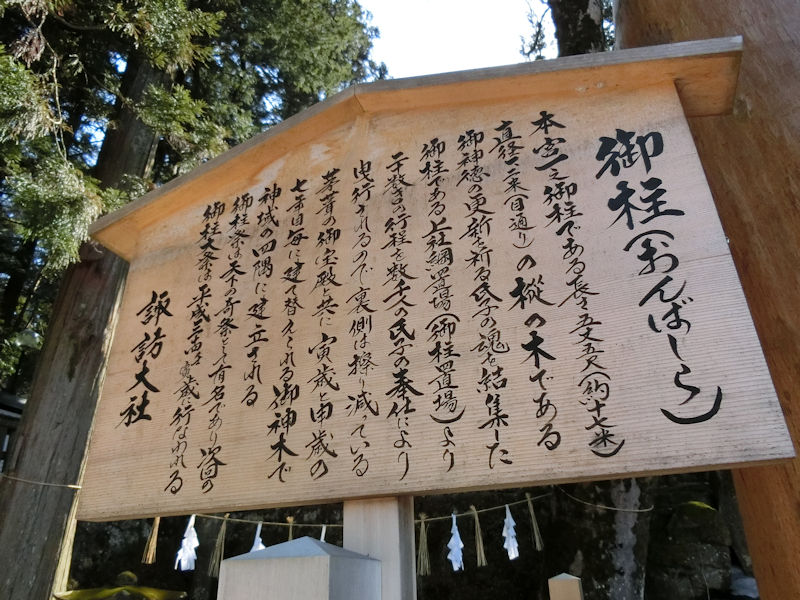 御柱(おんばしら)
本宮一之御柱である長さ五丈五尺(約十七米)
直経一二米(目通り)の樅の木である
御神徳の更新を祈る氏子の魂を結集した
御柱である上社綱置場(御柱置場)より
二十数キロの行程を数千人の氏子の奉仕により
曳行されるので裏側は擦り減っている
茅葺の御宝殿と共に寅歳と申歳の
七年目毎に建て替えられる御神木で
神域の四隅に建立される
御柱祭は天下の奇祭として有名であり次回の
御柱大祭は平成 年 歳に行なわれる
諏訪大社